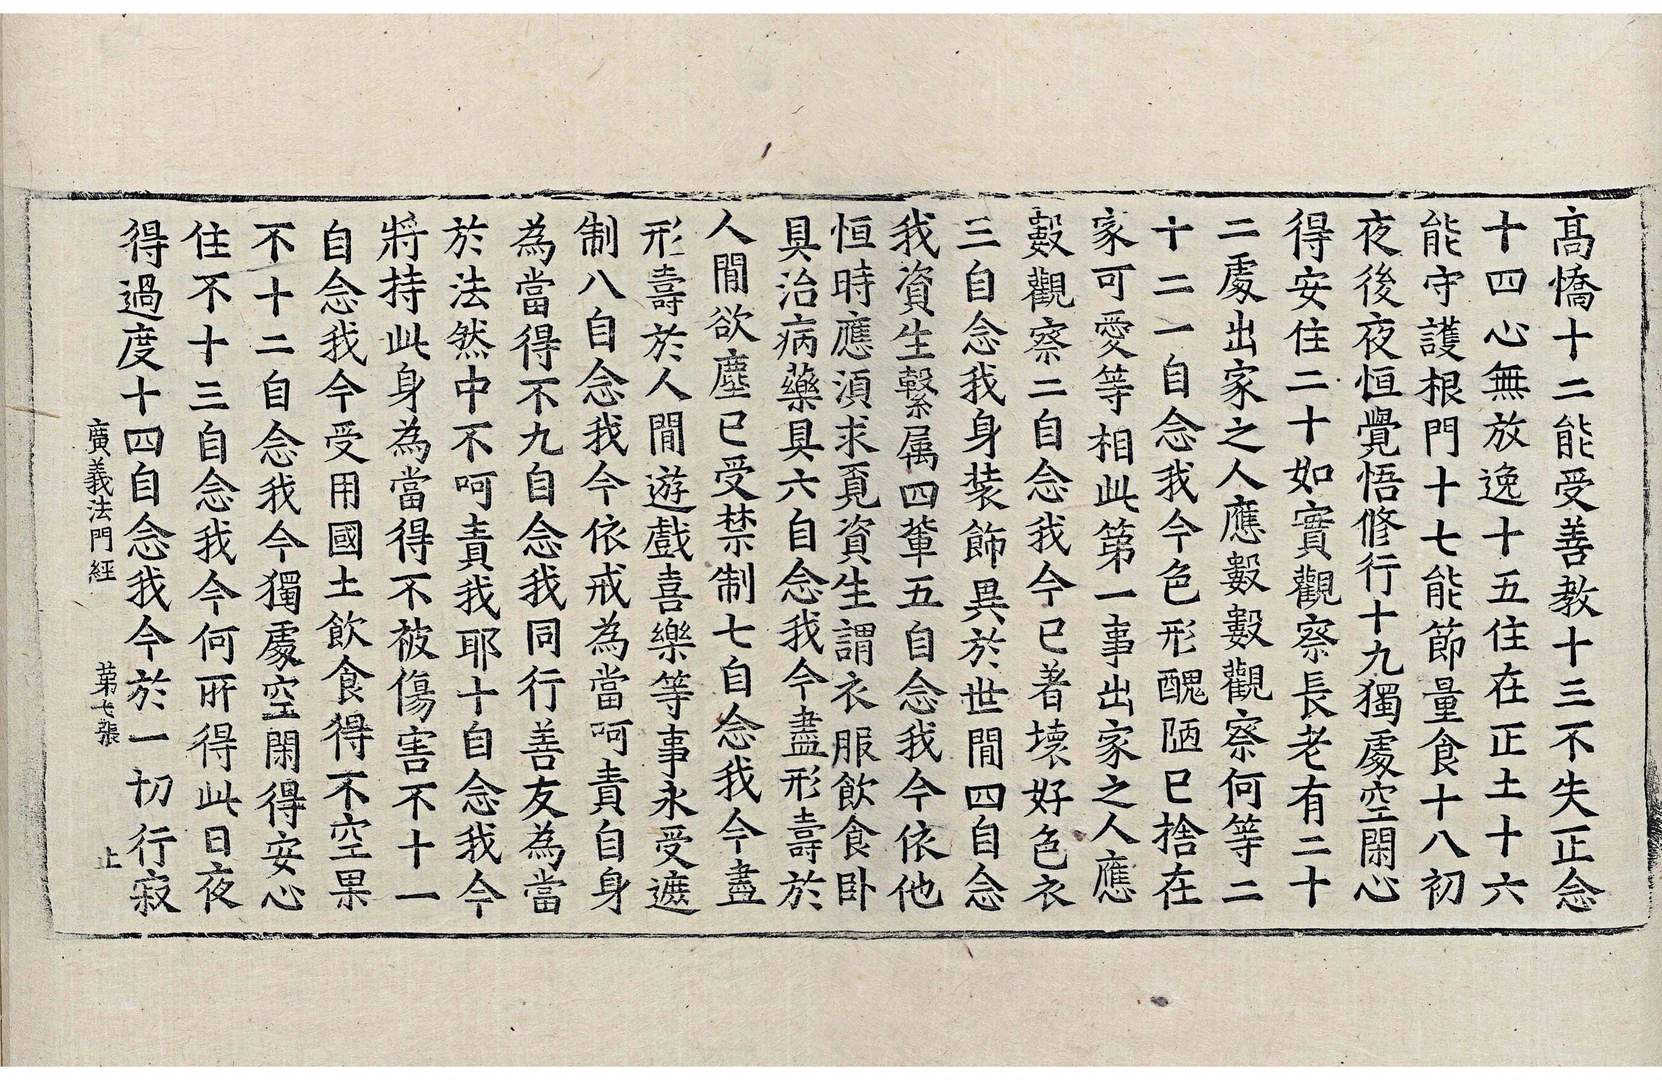 高憍十二能受善教十三不失正念
十四心無放逸十五住在正土十六
能守護根門十七能節量食十八初
夜後夜恒覺悟修行十九獨處空閑心
得安住二十如實觀察長老有二十
二處出家之人應數數觀察何等二
十二一自念我今色形醜陋已捨在
家可愛等相此第一事出家之人應
數觀察二自念我今已著壞好色衣
三自念我身裝飾異於世閒四自念
我資生繫属四輩五自念我今依他
恒時應湏求覓資生謂衣服飮食卧
具治病藥具六自念我今盡形壽於
人閒欲塵已受禁制七自念我今盡
形壽於人閒遊戲喜樂等事永受遮
制八自念我今依戒為當呵責自身
為當得不九自念我同行善友為當
於法然中不呵責我耶十自念我今
將持此身為當得不被傷害不十一
自念我今受用國土飮食得不空果
不十二自念我今獨處空閑得安心
住不十三自念我今何所得此日夜
得過度十四自念我今於一切行寂
廣義法門經 第七張 止